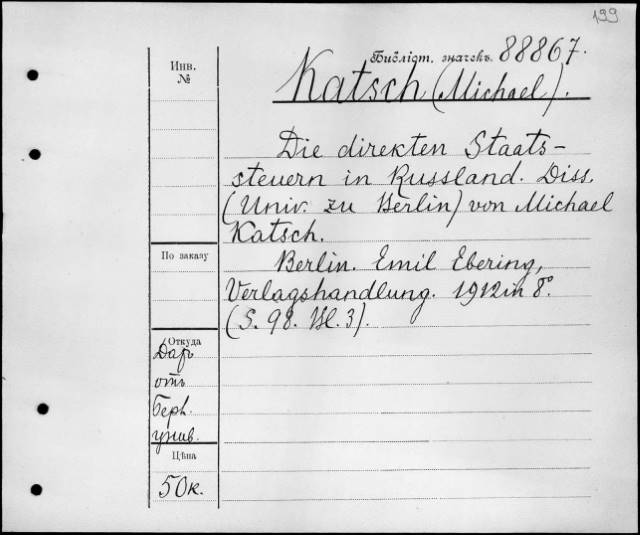 199
Инв.
№
Библіот. значекъ. 88867.
Katsch (Michael).
Die direkten Staats-
steuern in Russland. Diss.
(Univ. zu Berlin) von Michael
Katsch.
По заказу
Berlin. Emil Ebering,
Verlagshandlung. 1912 in 8°.
(S. 98. Bl. 3).
Откуда
Даръ
отъ
Берл.
унив.
Цѣна
50к.